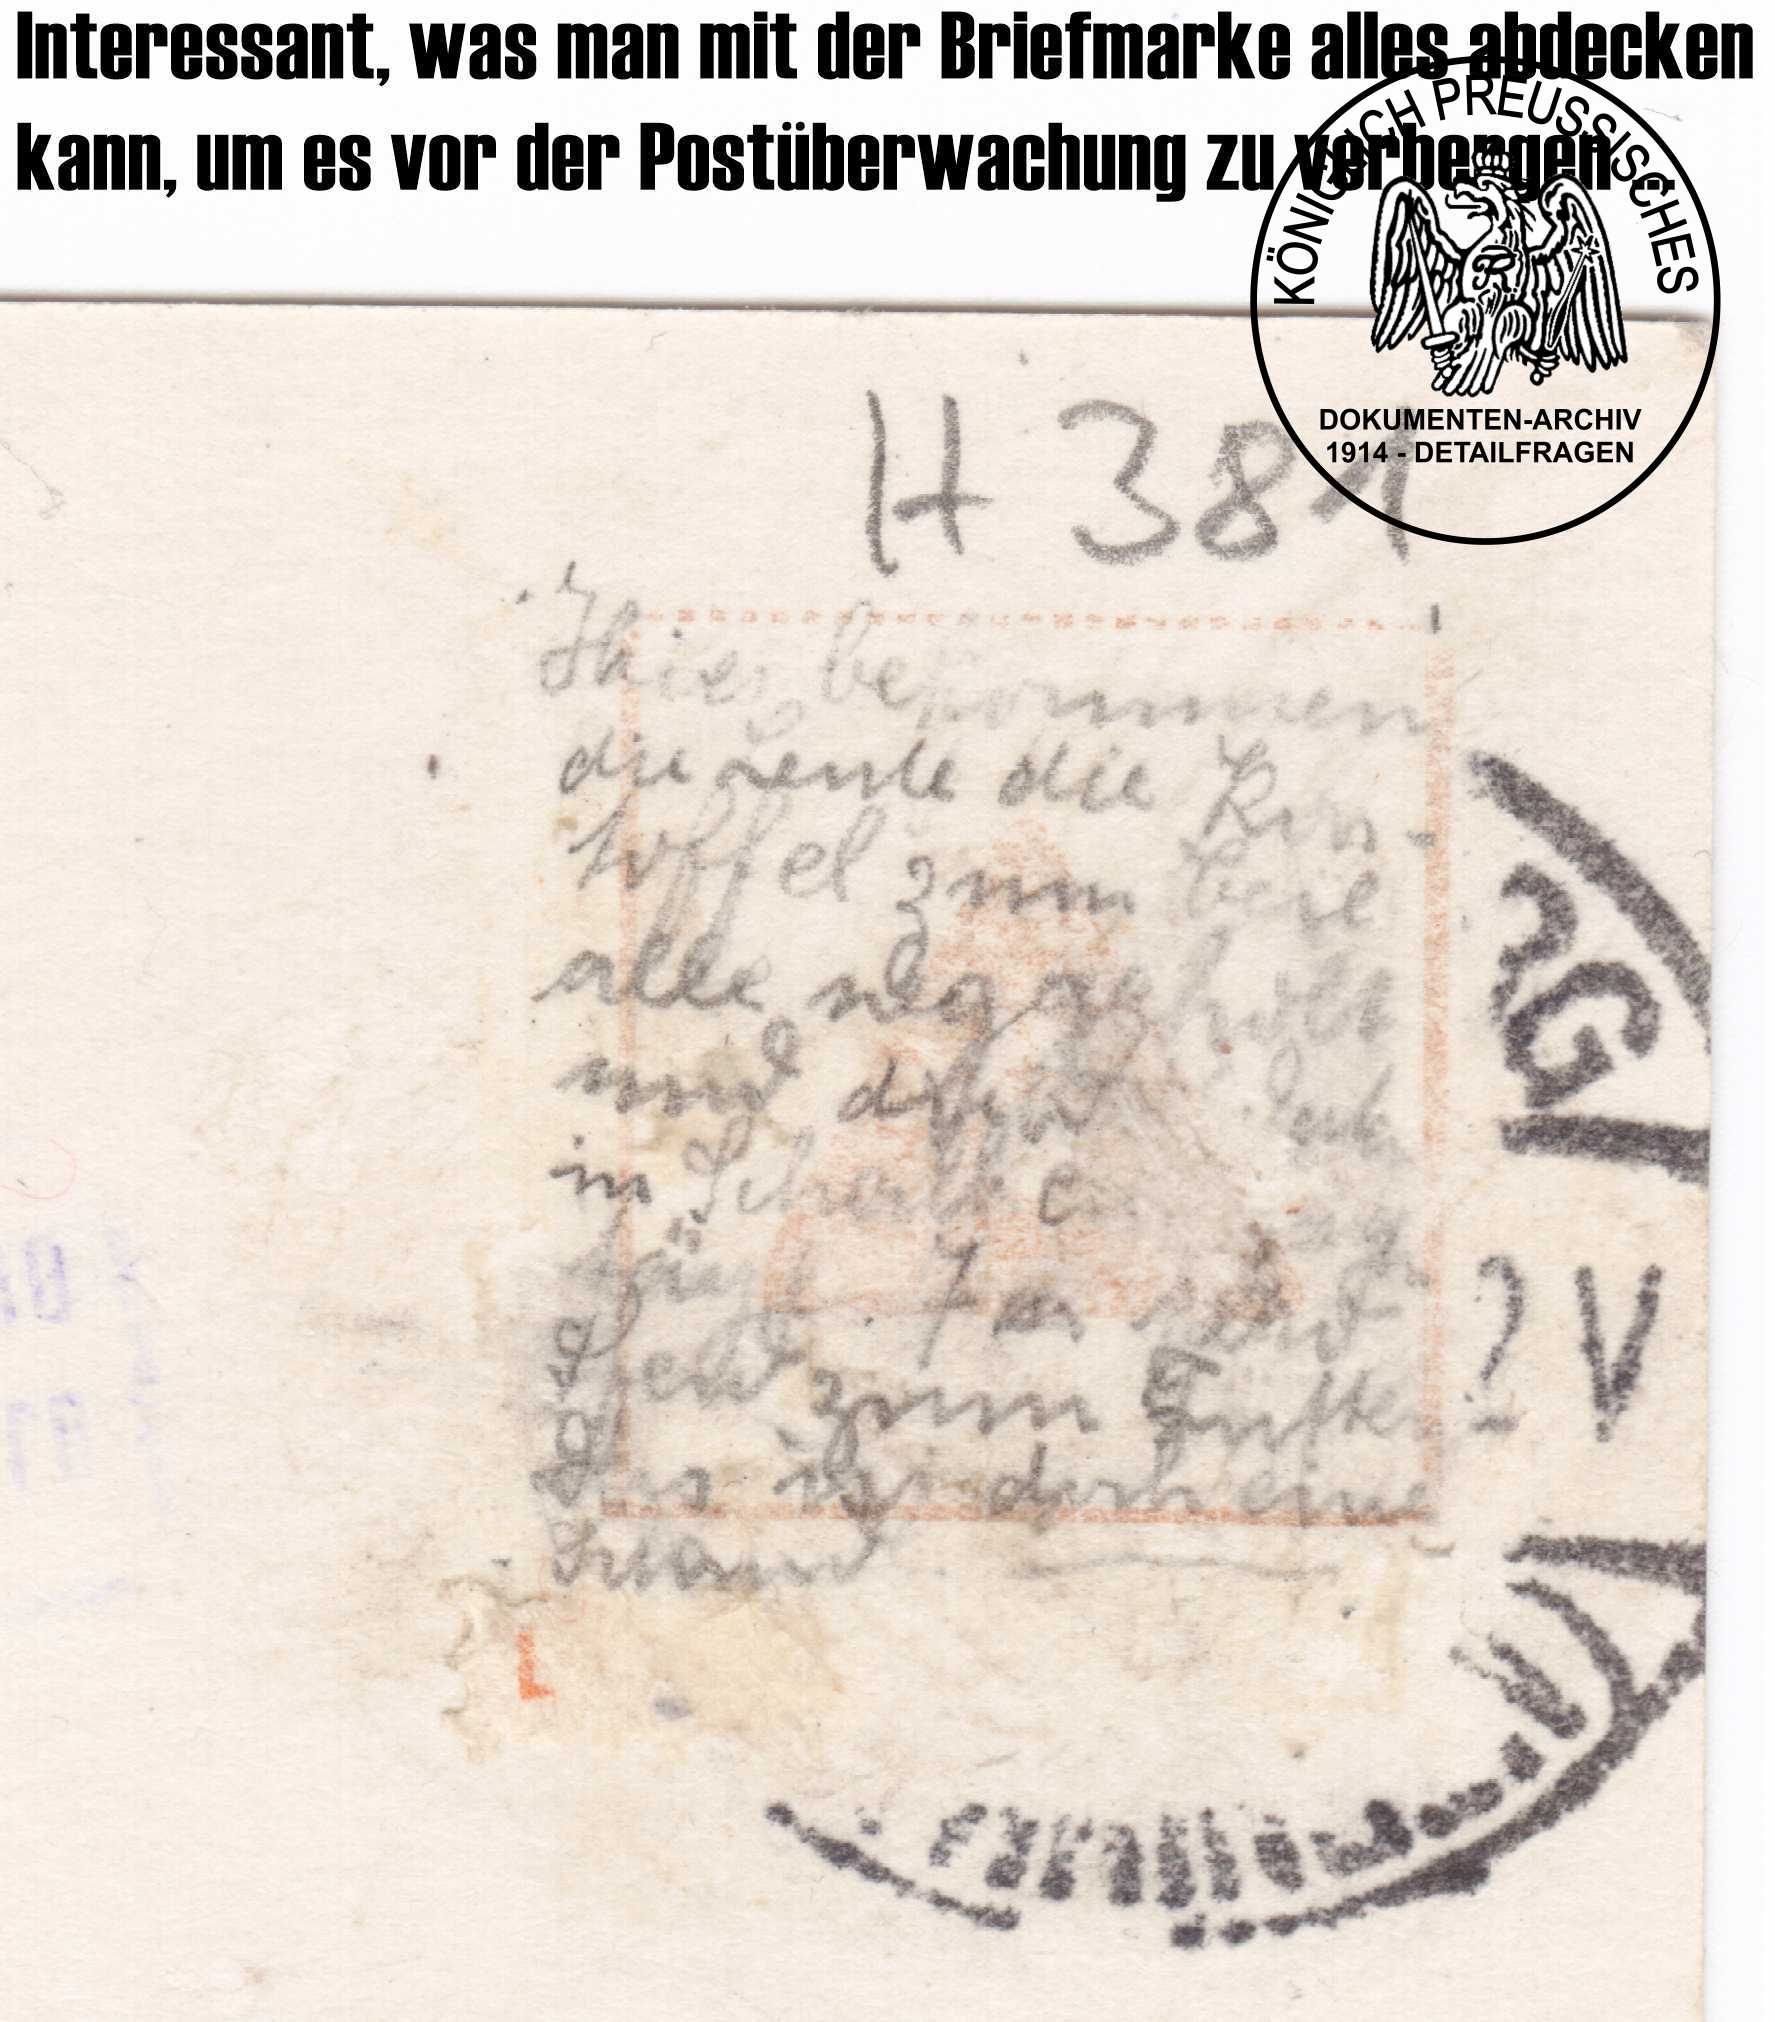 Interessant, was man mit der Briefmarke alles abdecken
kann, um es vor der Postüberwachung zu verbergen ...
KÖNIGLICH PREUSSISCHES
DOKUMENTEN-ARCHIV
1914 - DETAILFRAGEN
H 381
Hier bekommen
die Leute die Kar-
toffel zum teil
alle weggeholt
und dort
in
7
Feld zum
Das ist doch eine
Schand
AG
2 V